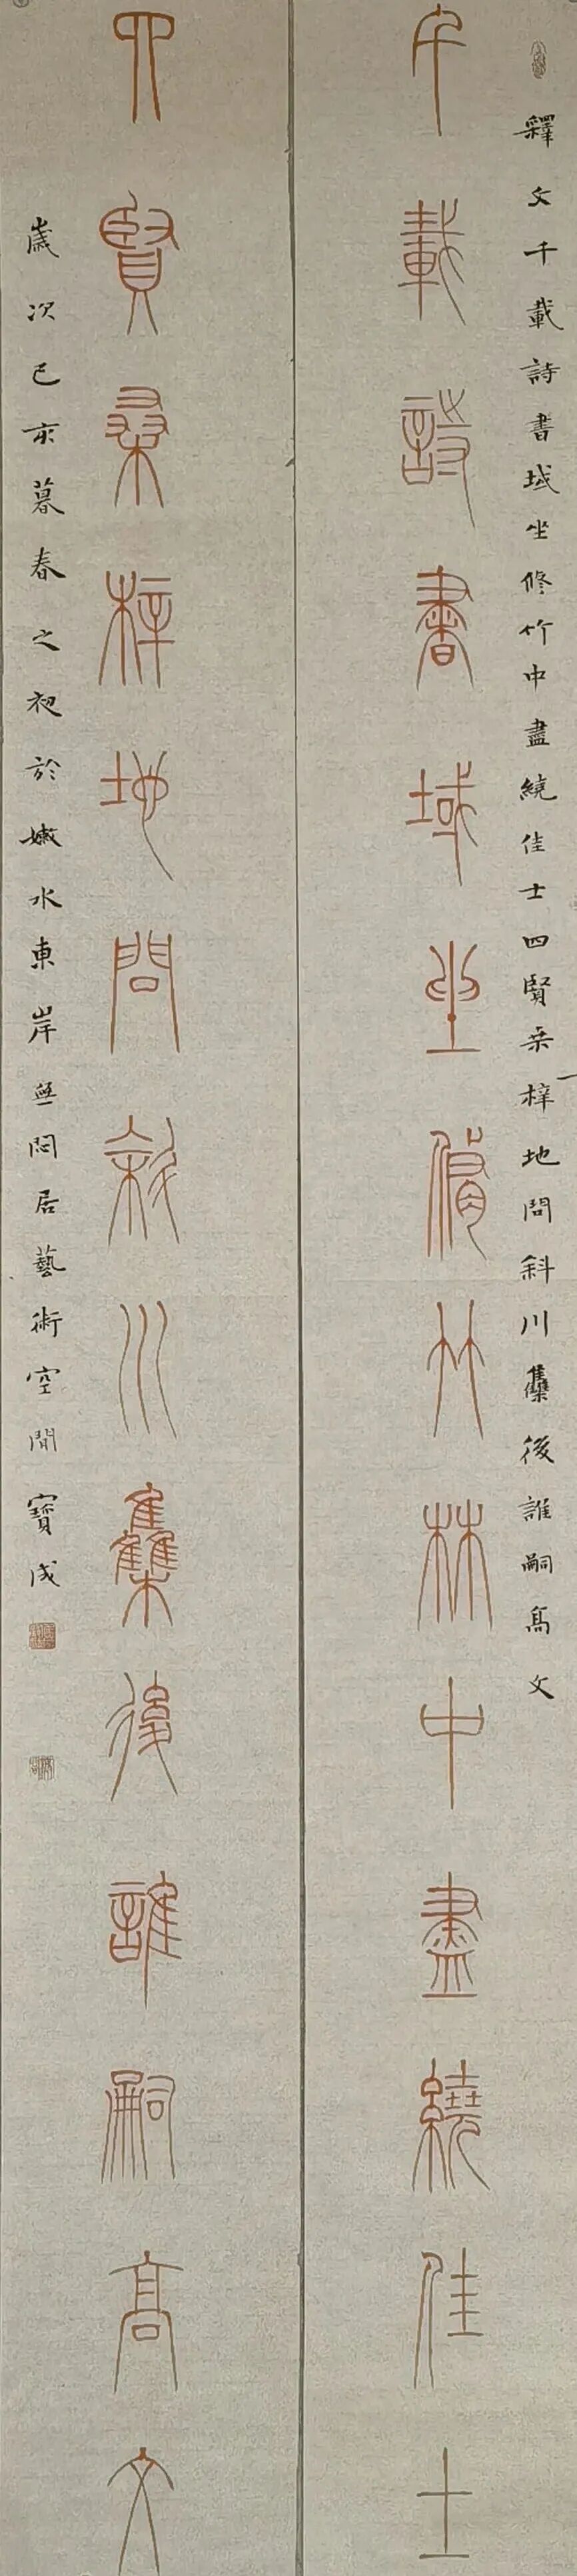 釋文千載詩書域坐修竹中盡繞佳士四賢桒梓地問斜川雧後誰嗣高文
千載詩書域坐脩竹林中盡繞佳士
四賢桑梓地問斜川雧後誰嗣高文
歲次己亥暮春之初於嫩水東岸無悶居藝術空間寶成